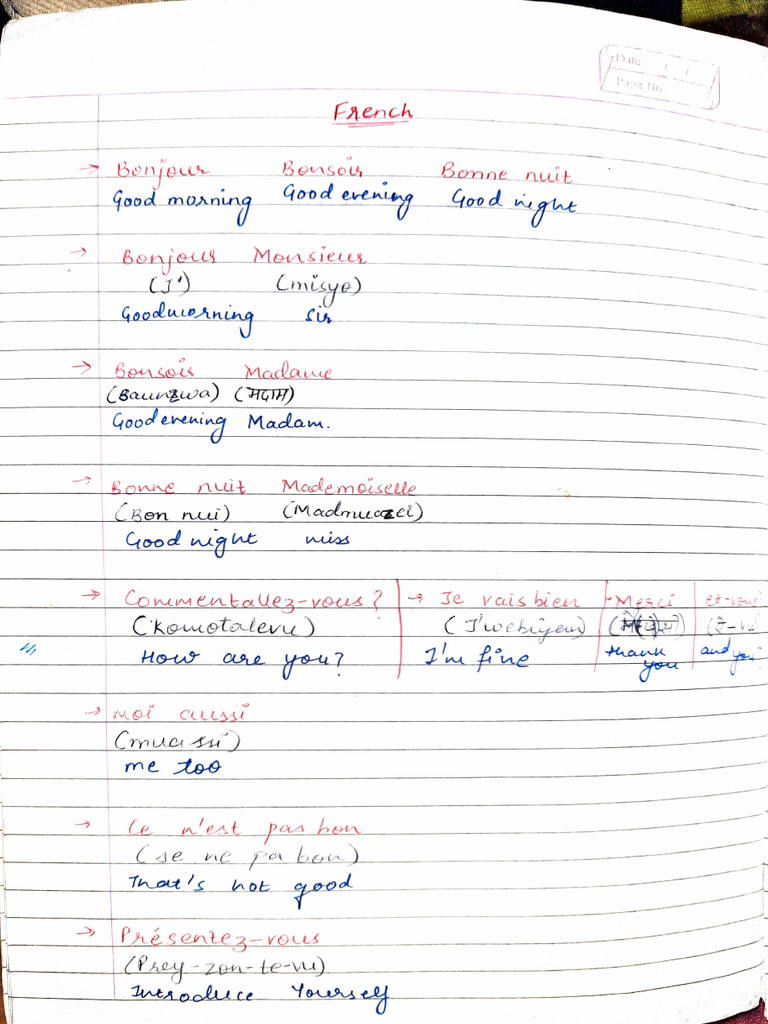 Date : / /
Page No.
French
→ Bonjour Bonsoir Bonne nuit
Good morning Good evening Good night
→ Bonjour Monsieur
(J') (misyo)
Goodmorning sir
→ Bonsoir Madame
(Baunzwa) (मदाम)
Good evening Madam.
→ Bonne nuit Mademoiselle
(Bon nui) (Madmuazel)
Good night miss
→ Commentallez-vous? → Je vais bien - Merci et-vous
(Komotalevu) (J'vebiyen)
How are you? I'm fine thank you and you?
→ moi aussi
(muassi)
me too
→ Ce n'est pas bon
(se ne pa bon)
That's not good
→ Présentez-vous
(Prey-zon-te-vu)
Introduce Yourself